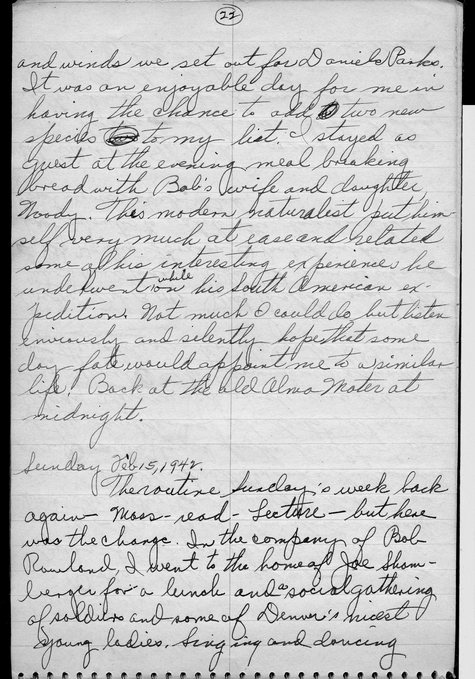 22
and winds we set out for Daniels Parks.
It was an enjoyable day for me in
having the chance to add two new
species to my list. I stayed as
guest at the evening meal breaking
bread with Bob's wife and daughter,
Woody. This modern naturalist put him-
self very much at ease and related
some of his interesting experiences he
underwent while his South American ex-
pedition. Not much I could do but listen
enviously and silently hope that some
day fate would appoint me to a similar
life. Back at the old Alma Mater at
midnight.
Sunday Feb 15, 1942.
The routine Sunday's week back
again - Mass - read - Lecture - but here
was the change. In the company of Bob
Rowland, I went to the home of Joe Sham-
berger for a lunch and a social gathering
of soldiers and some of Denver's nicest
young ladies. Singing and dancing